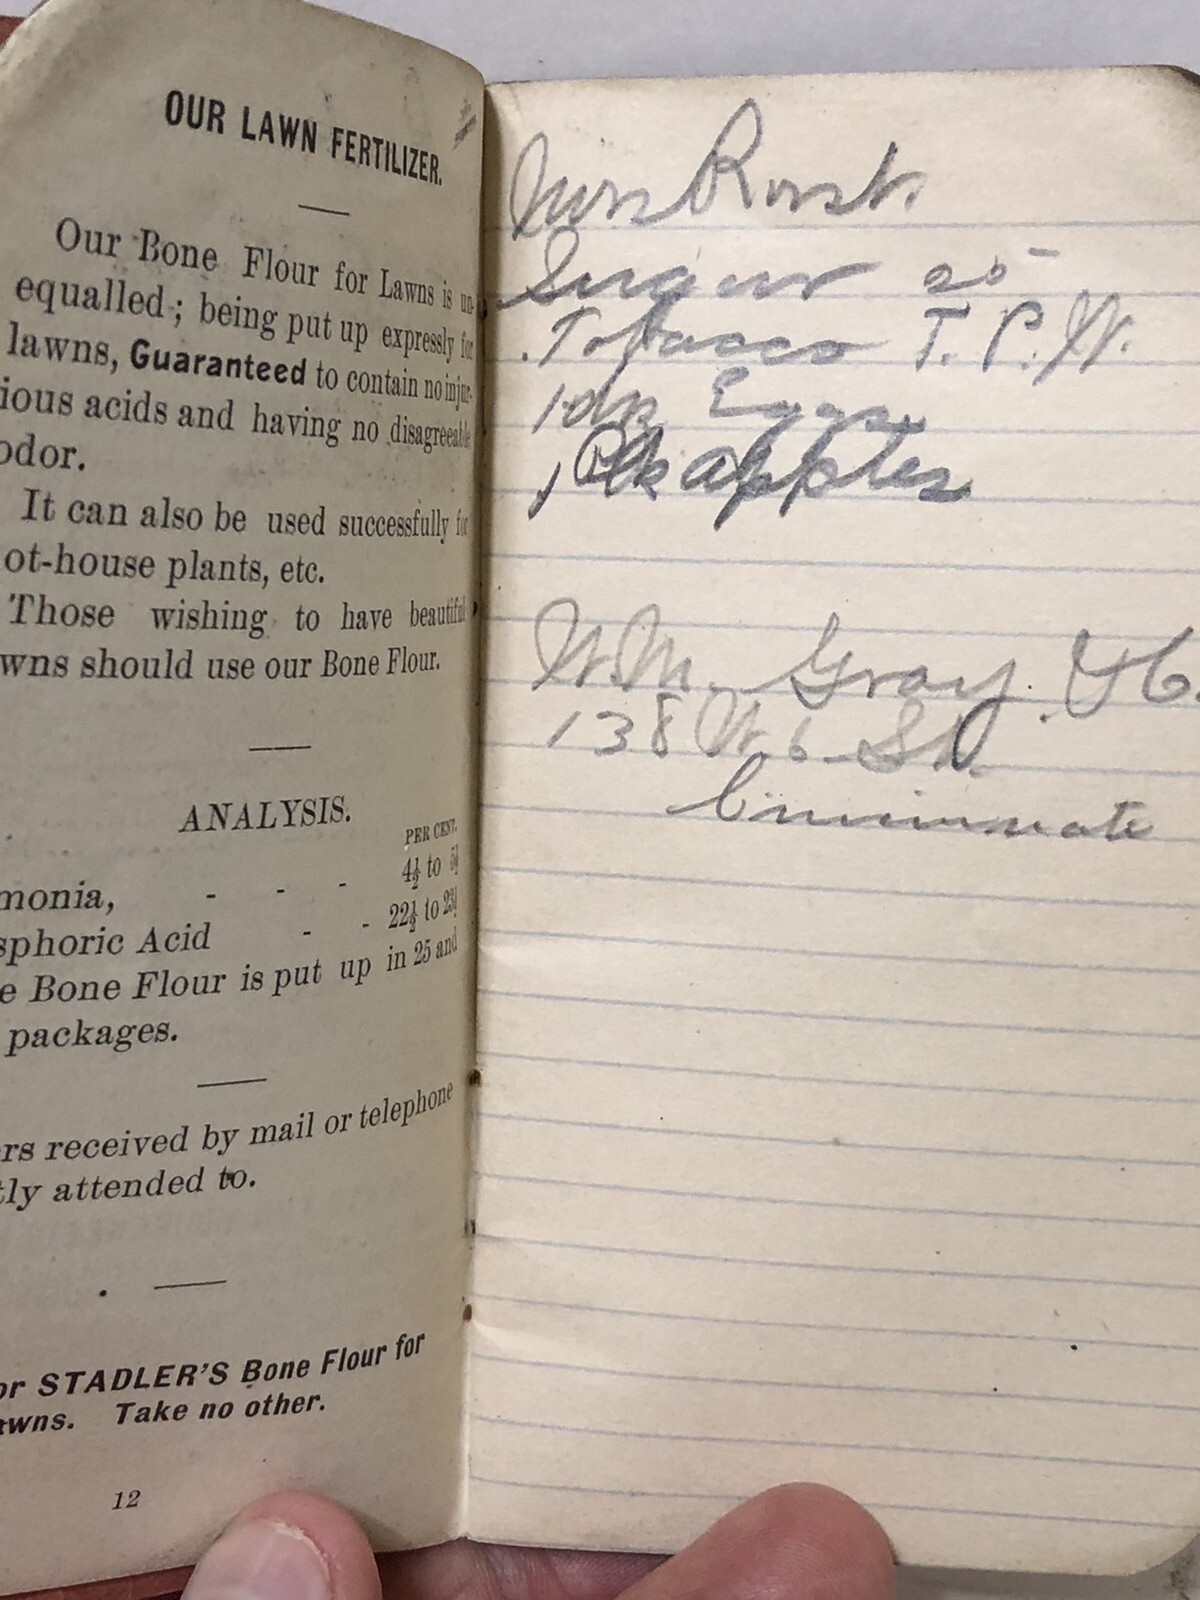 OUR LAWN FERTILIZER.
Our Bone Flour for Lawns is un-
equalled; being put up expressly for
lawns, Guaranteed to contain no injur-
ious acids and having no disagreeable
odor.
It can also be used successfully for
ot-house plants, etc.
Those wishing to have beautiful
wns should use our Bone Flour.
ANALYSIS.
PER CENT.
monia, - - - 4½ to
sphoric Acid - - 22½ to
e Bone Flour is put up in 25 and
packages.
ers received by mail or telephone
tly attended to.
or STADLER'S Bone Flour for
awns. Take no other.
12
Mrs
Sugar 25
Tobacco T. P. W.
1 dz Eggs
1 Pk apples
W. M. Gray. & C.
138 W. 6 St.
Cincinnate